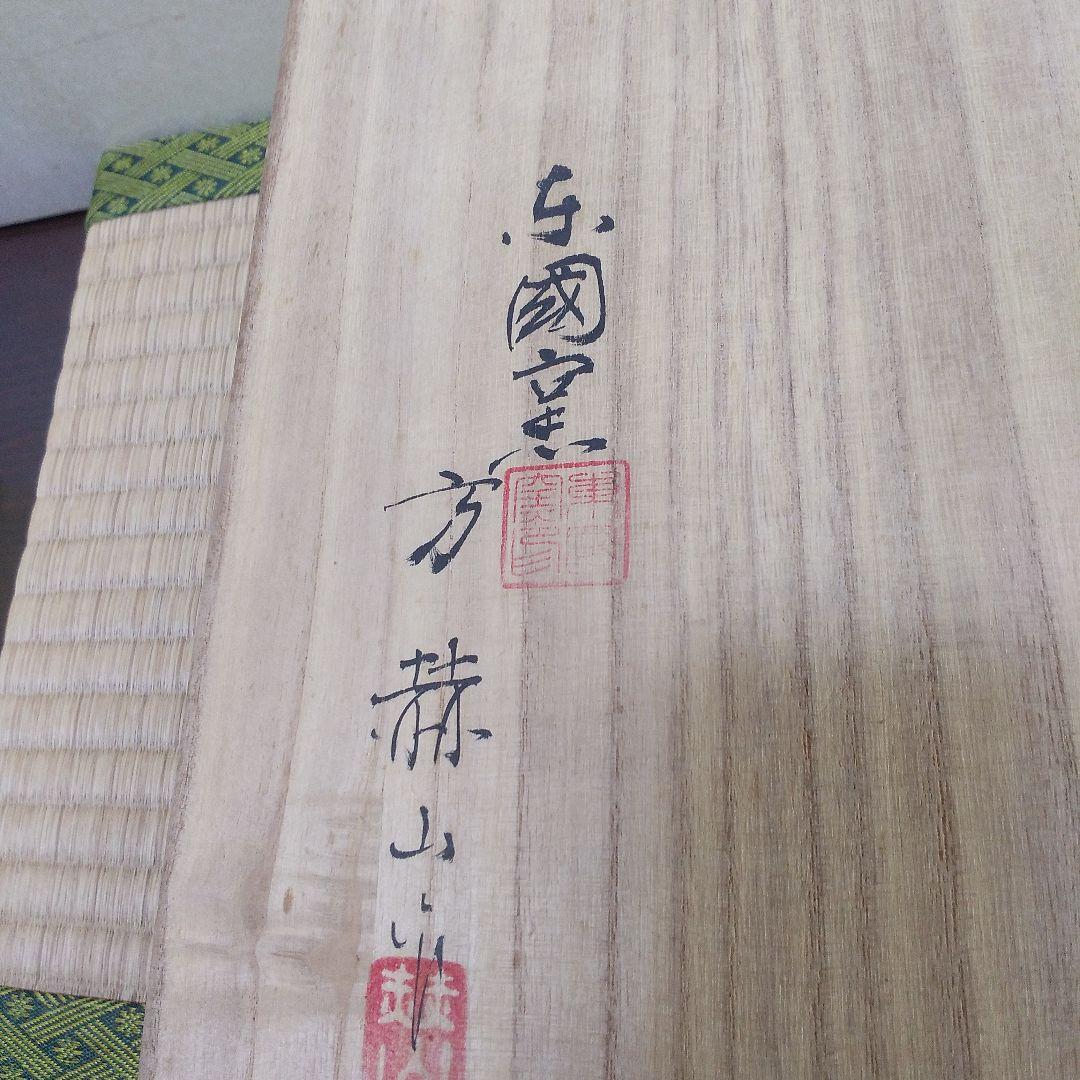 东國窯
方赫山作